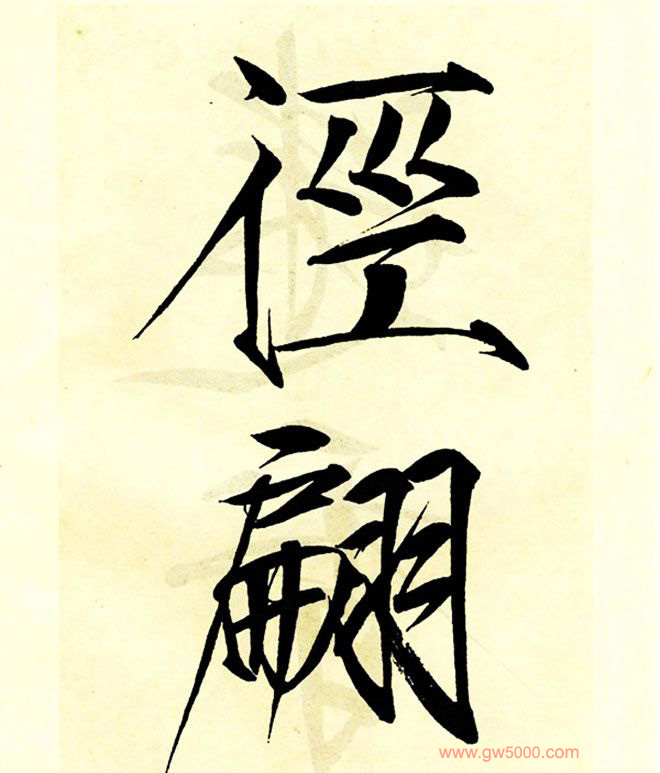 徑
翩
www.gw5000.com